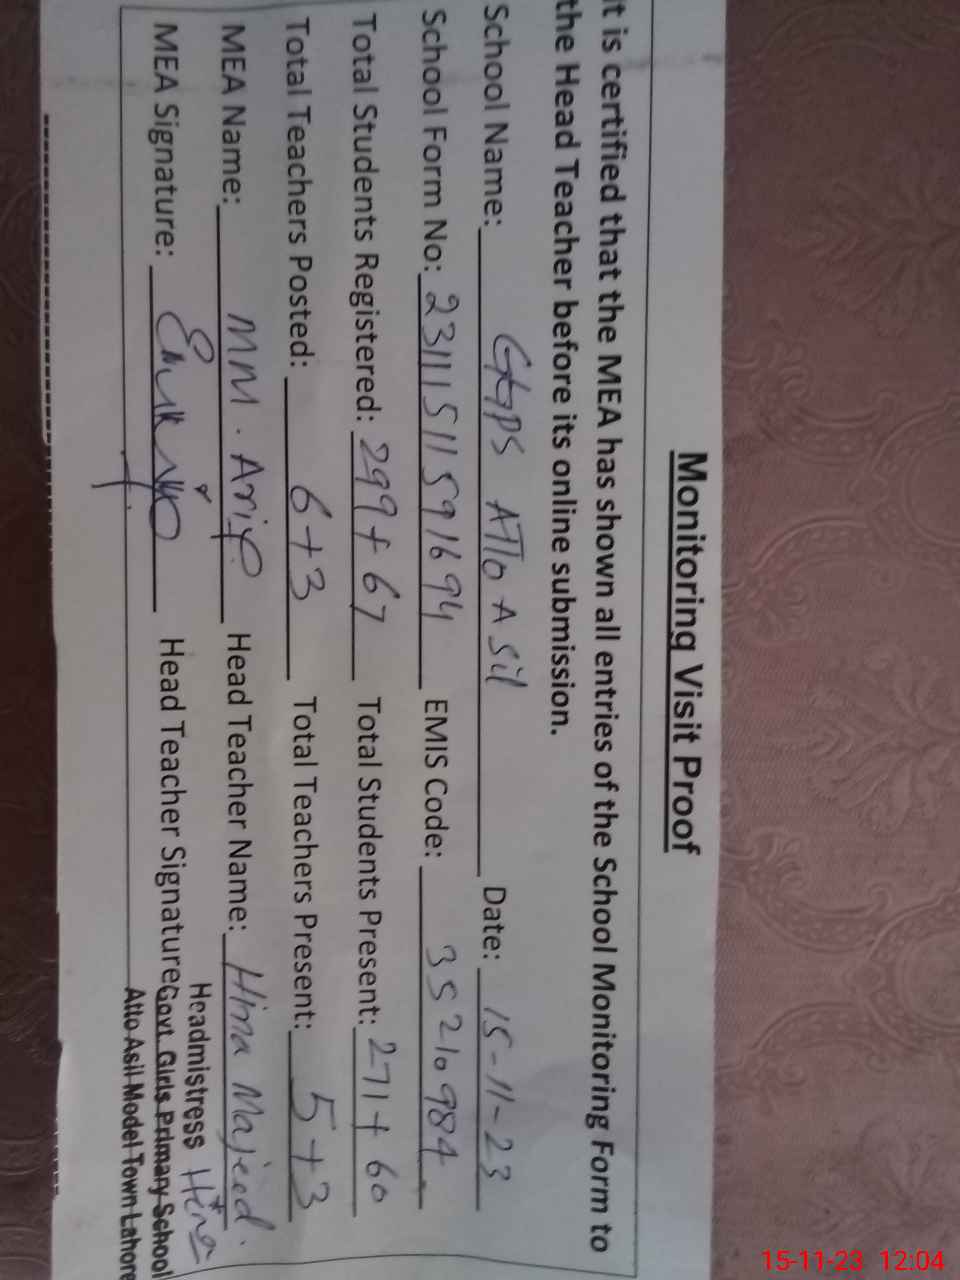 Monitoring Visit Proof
It is certified that the MEA has shown all entries of the School Monitoring Form to
the Head Teacher before its online submission.
School Name: GGPS Atto Asil Date: 15-11-23
School Form No: 23111511591694 EMIS Code: 35210984
Total Students Registered: 299+67 Total Students Present: 271+60
Total Teachers Posted: 6+3 Total Teachers Present: 5+3
MEA Name: MM. Arif Head Teacher Name: Hina Majeed.
MEA Signature: Head Teacher Signature
Headmistress Hina
Govt. Girls Primary School
Atto Asil Model Town Lahore
15-11-23 12:04